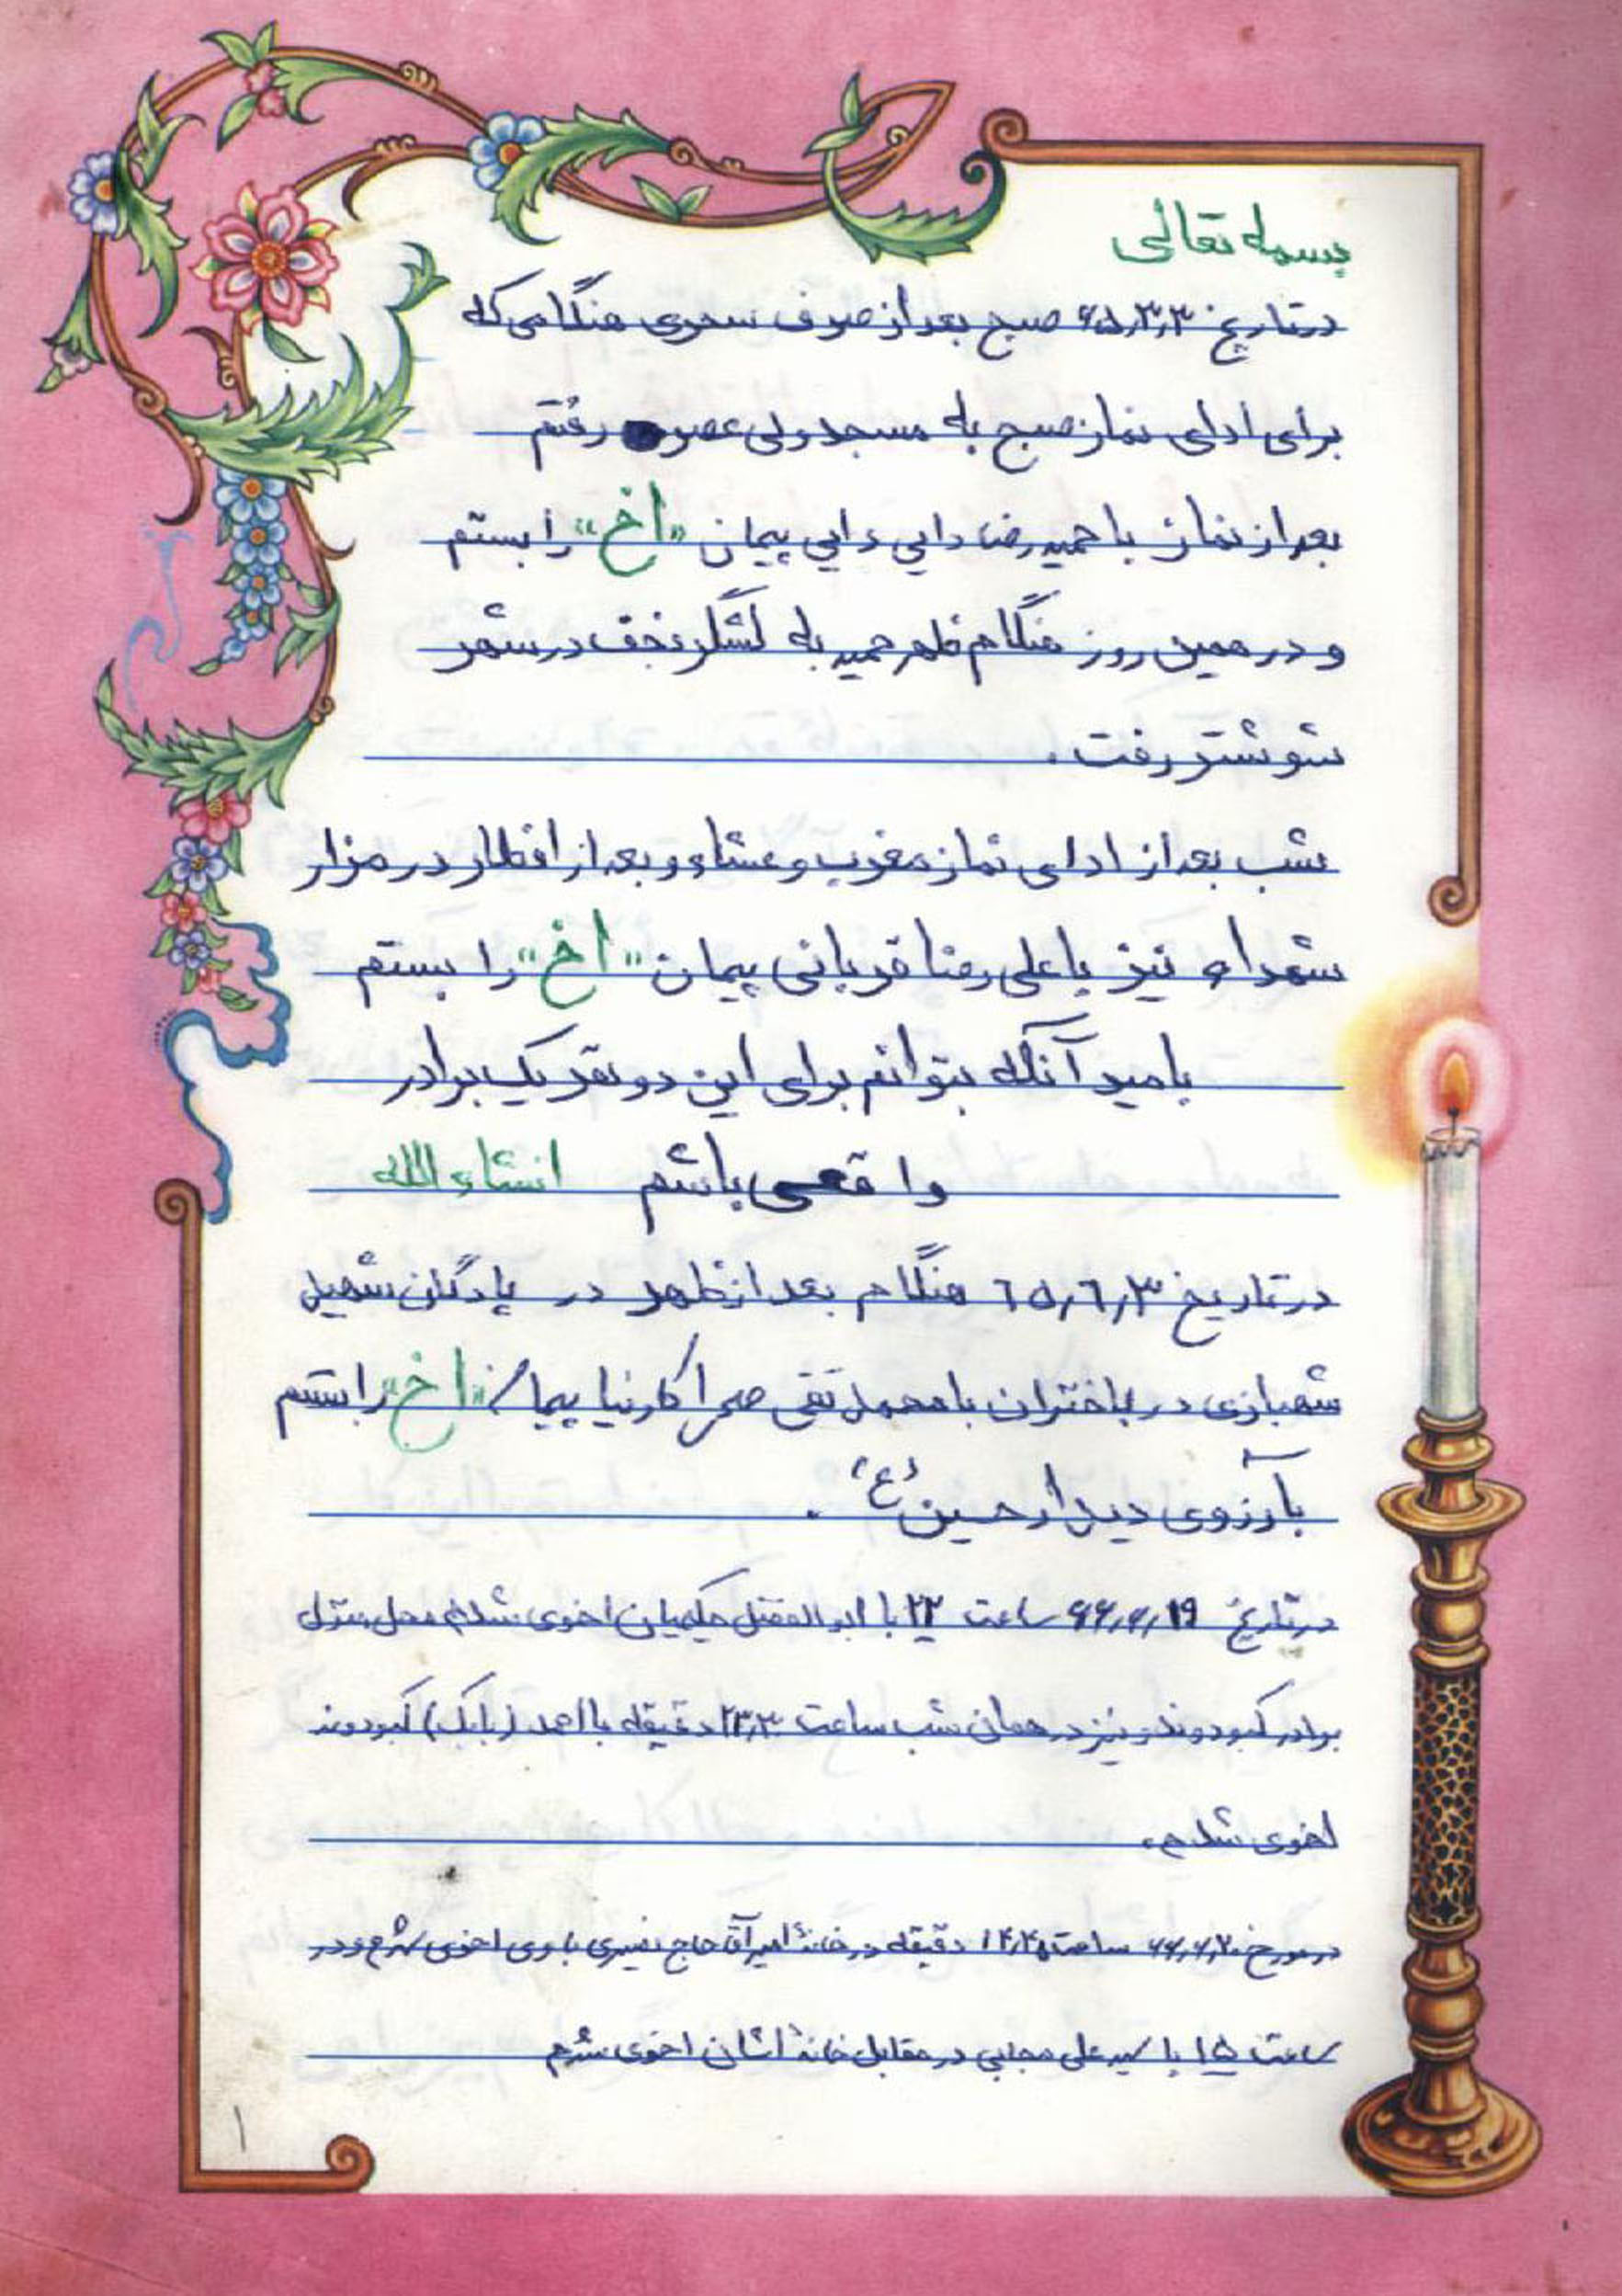 بسمه تعالی
در تاریخ ۶۵٫۳٫۳ صبح بعد از صرف سحری هنگامی که
برای ادای نماز صبح به مسجد ولی عصر رفتم
بعد از نماز با حمید رضا دایی دایی پیمان «اخ» را بستم
و در همین روز هنگام ظهر حمید به لشگر نجف در شهر
شوشتر رفت.
شب بعد از ادای نماز مغرب و عشاء و بعد از افطار در مزار
شهداء نیز با علی رضا قربانی پیمان «اخ» را بستم
بامید آنکه بتوانم برای این دو نفر یک برادر
واقعی باشم انشاء الله
در تاریخ ٦٥٫٦٫٣ هنگام بعد از ظهر در پادگان شهید
شهبازی در باختران با محمد تقی صحرا کارنیا پیمان «اخ» را بستم
بآرزوی دیدار حسین (ع).
در تاریخ ۶۶٫۶٫۱۹ ساعت ۲۲ با ابوالفضل حکیمیان اخوی شدم محل منزل
برادر کبودوند و نیز در همان شب ساعت ۲۳٫۳۰ دقیقه با احمد (بابک) کبودوند
اخوی شدم.
در مورخ ۶۶٫۶٫۲۰ ساعت ۱۴٫۴۵ دقیقه در خانهٔ امیر آقا حاج نصیری با وی اخوی شدم و در
ساعت ۱۵ با سید علی مجابی در مقابل خانهٔ اشان اخوی شدم
۱